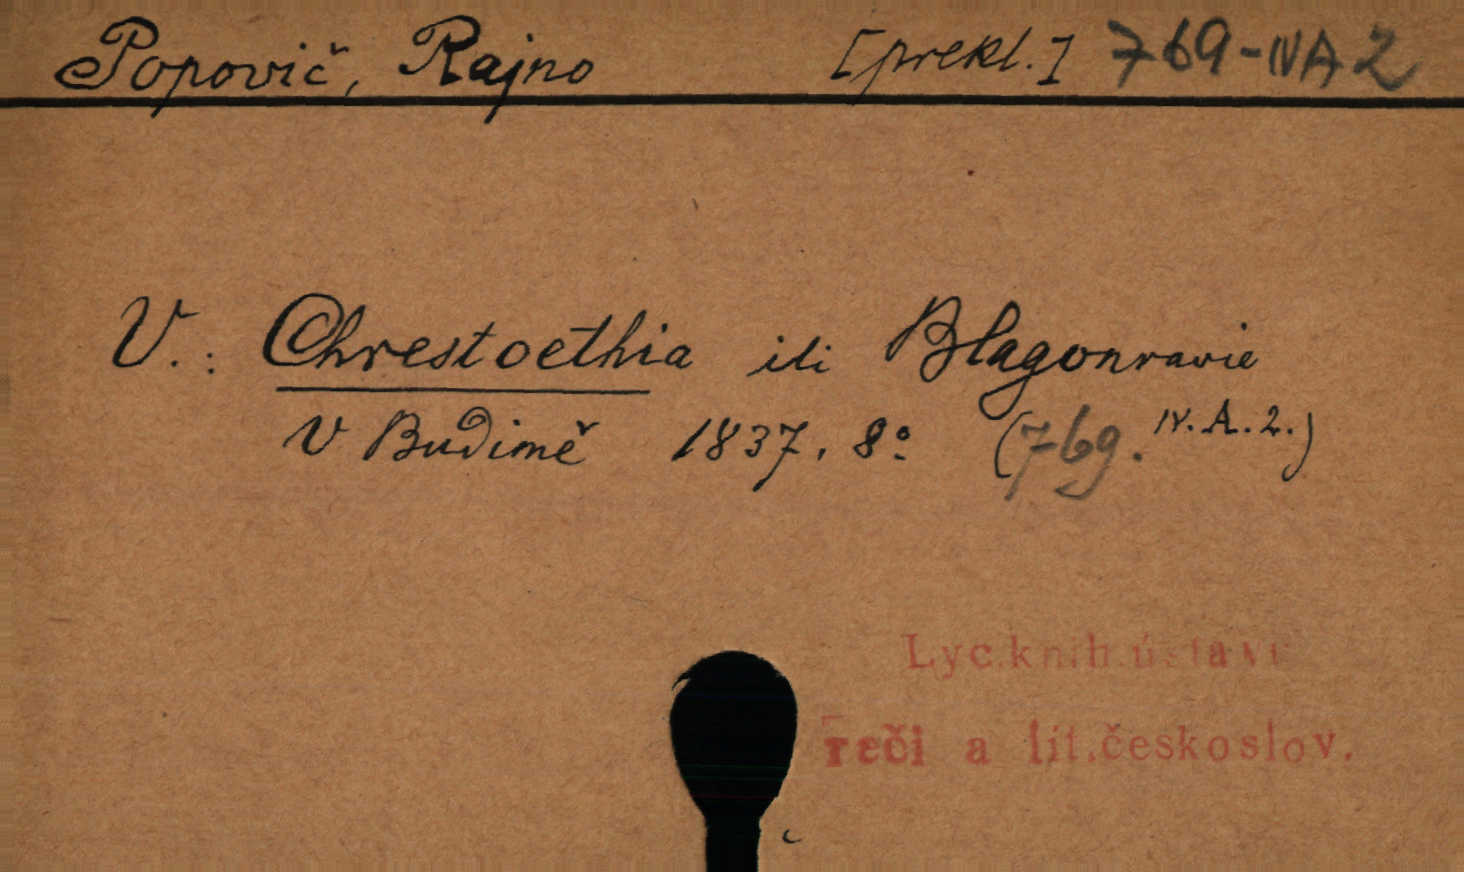 Popovič, Rajno [prekl.] 769-IVA2
V.: Chrestoethia ili Blagonravie
v Budimě 1837, 8° (769. IV.A.2.)
Lyc. knih. ústavu
reči a lit. českoslov.